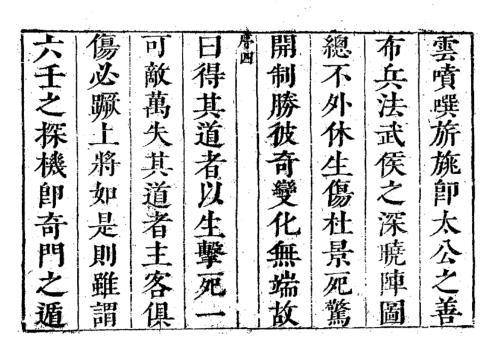 雲噴噀旂旎卽太公之善
布兵法武侯之深曉陣圖
總不外休生傷杜景死驚
開制勝彼奇變化無端故
序四
曰得其道者以生擊死一
可敵萬失其道者主客俱
傷必蹶上將如是則雖謂
六壬之探機卽奇門之遁